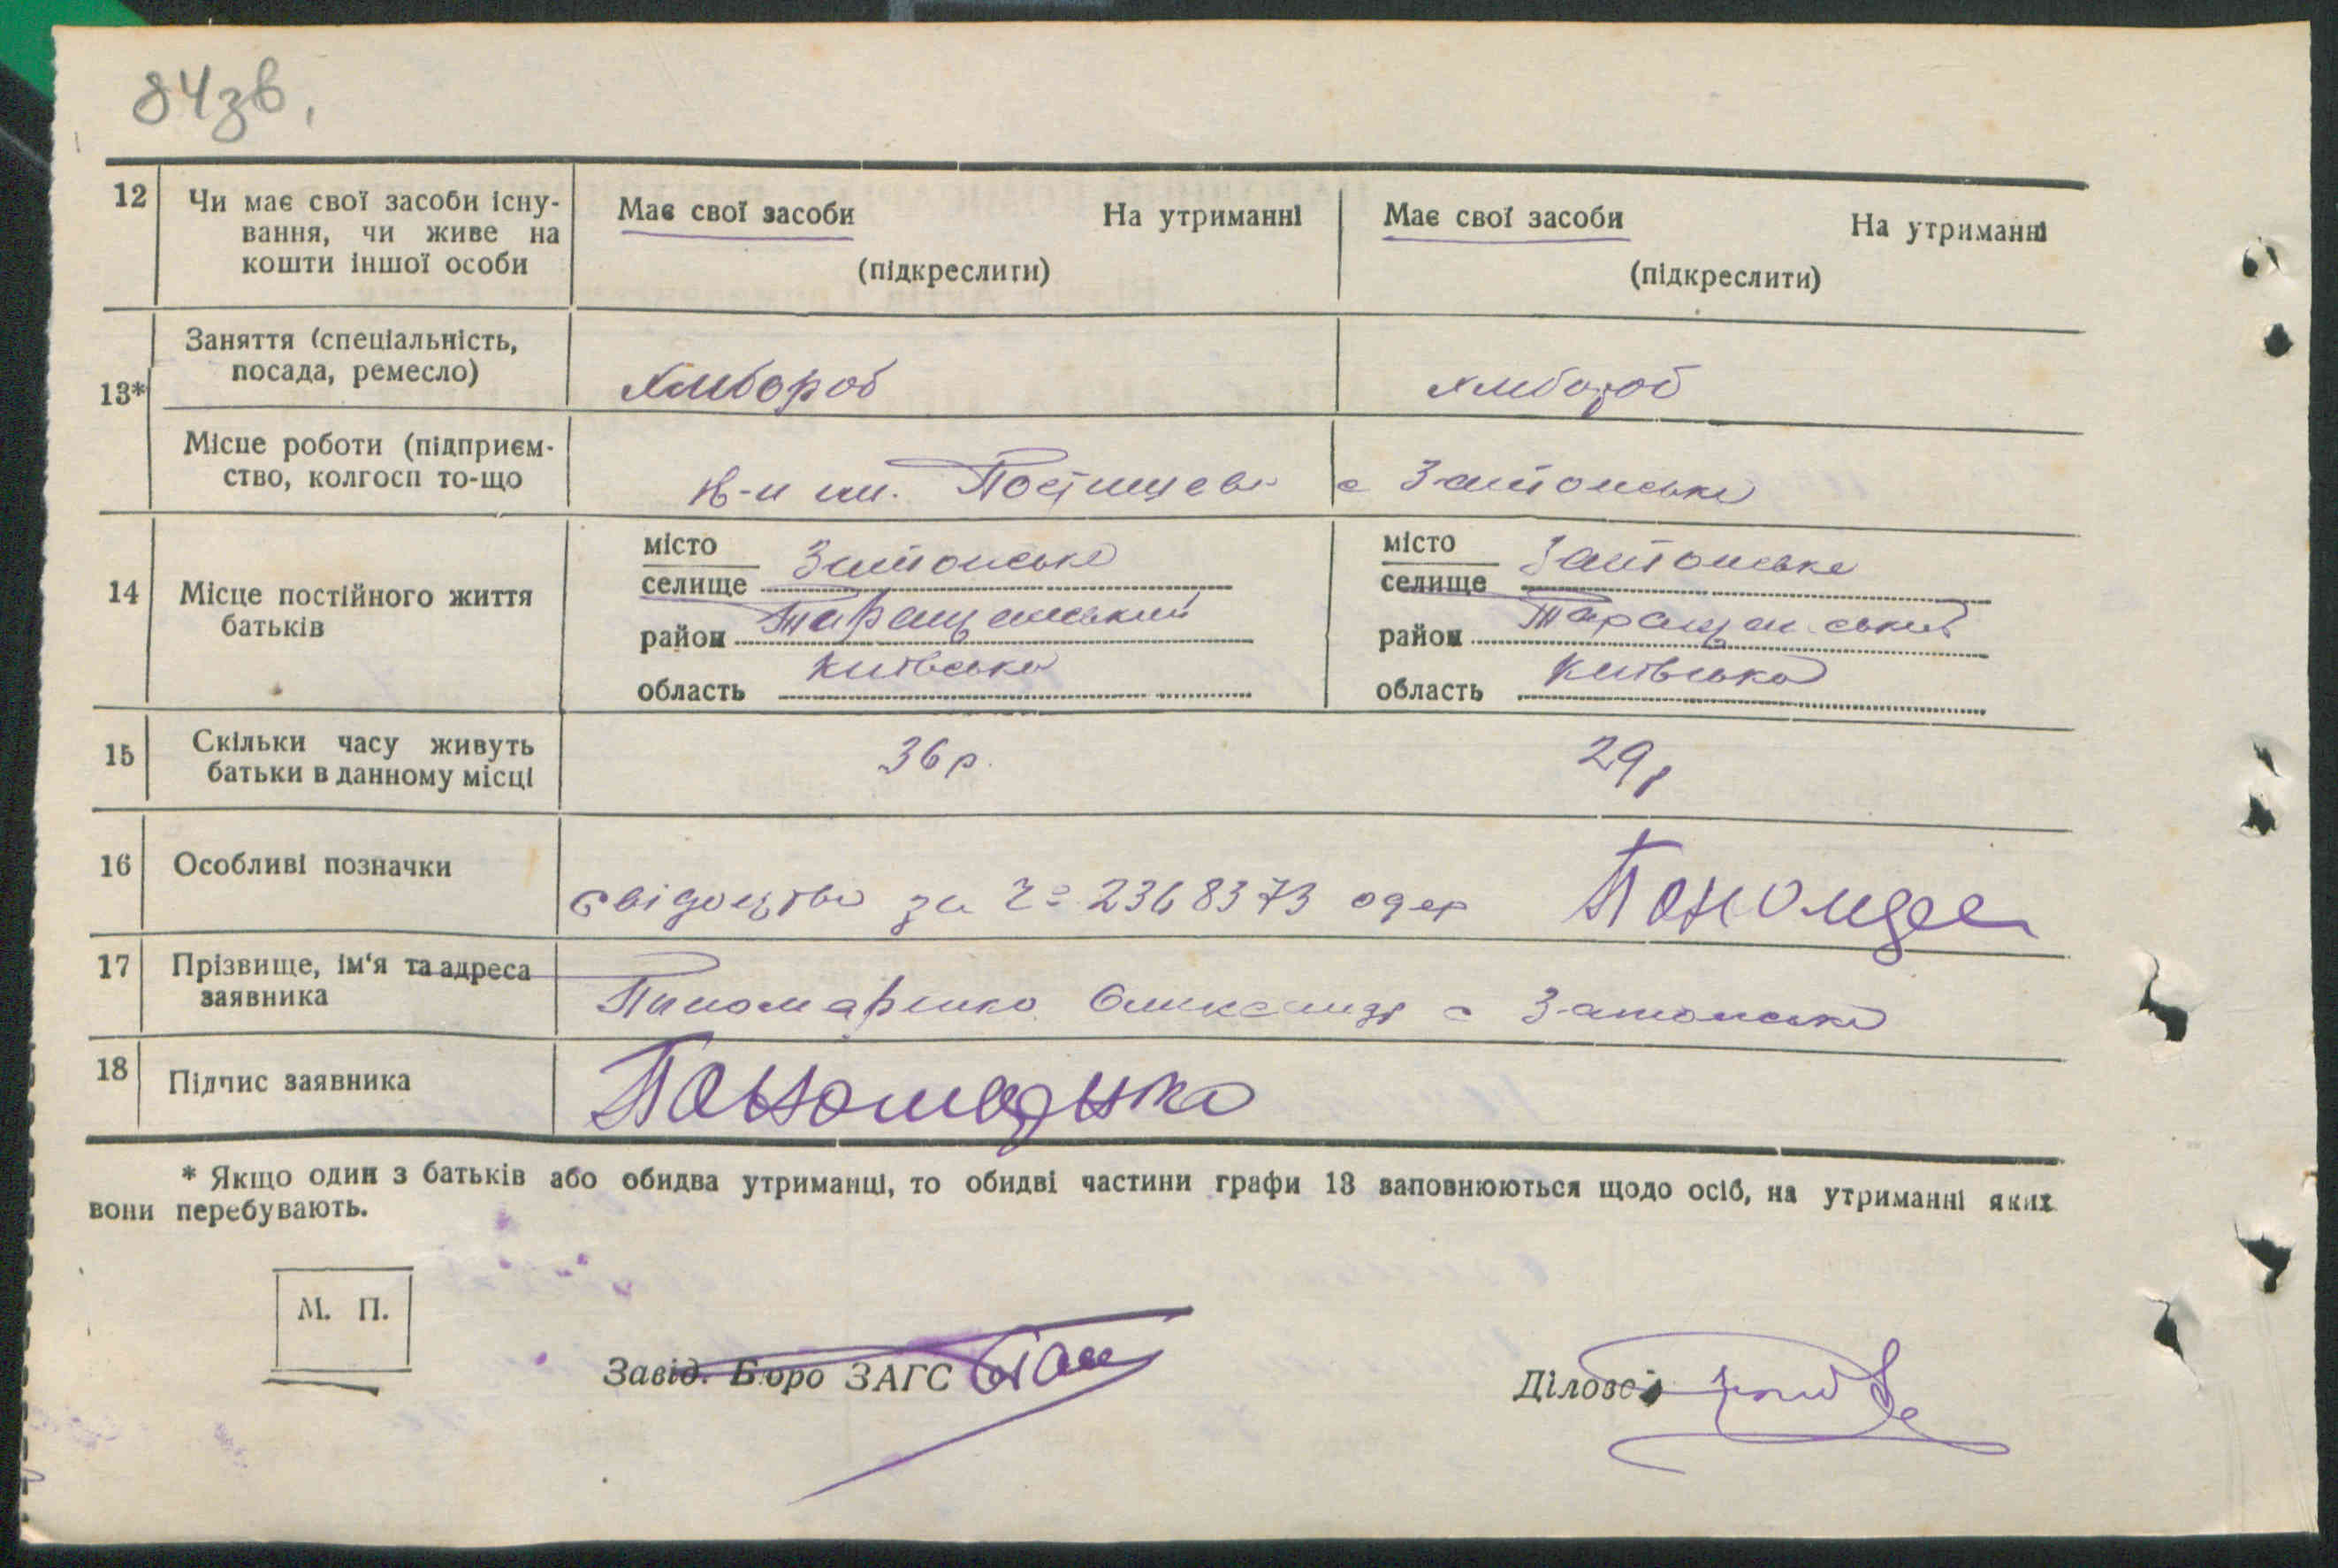 84зв.
12 Чи має свої засоби існу-
вання, чи живе на
кошти іншої особи
Має свої засоби На утриманні
(підкреслити)
Має свої засоби На утриманні
(підкреслити)
13*
Заняття (спеціальність,
посада, ремесло)
хлібороб
хлібороб
Місце роботи (підприєм-
ство, колгосп то-що
к-п ім. Постишева с Затонське
14 Місце постійного життя
батьків
місто
селище Затонське
район Таращанський
область Київська
місто
селище Затонське
район Таращанський
область Київська
15 Скільки часу живуть
батьки в данному місці
36 р.
29 р
16 Особливі позначки
свідоцтво за № 2368373 одер
17 Прізвище, ім'я та адреса
заявника
Пономаренко Олександр с Затонське
18 Підпис заявника
Пономаренко
* Якщо один з батьків або обидва утриманці, то обидві частини графи 13 заповнюються щодо осіб, на утриманні яких
вони перебувають.
М. П.
Завід. Бюро ЗАГС
Діловод